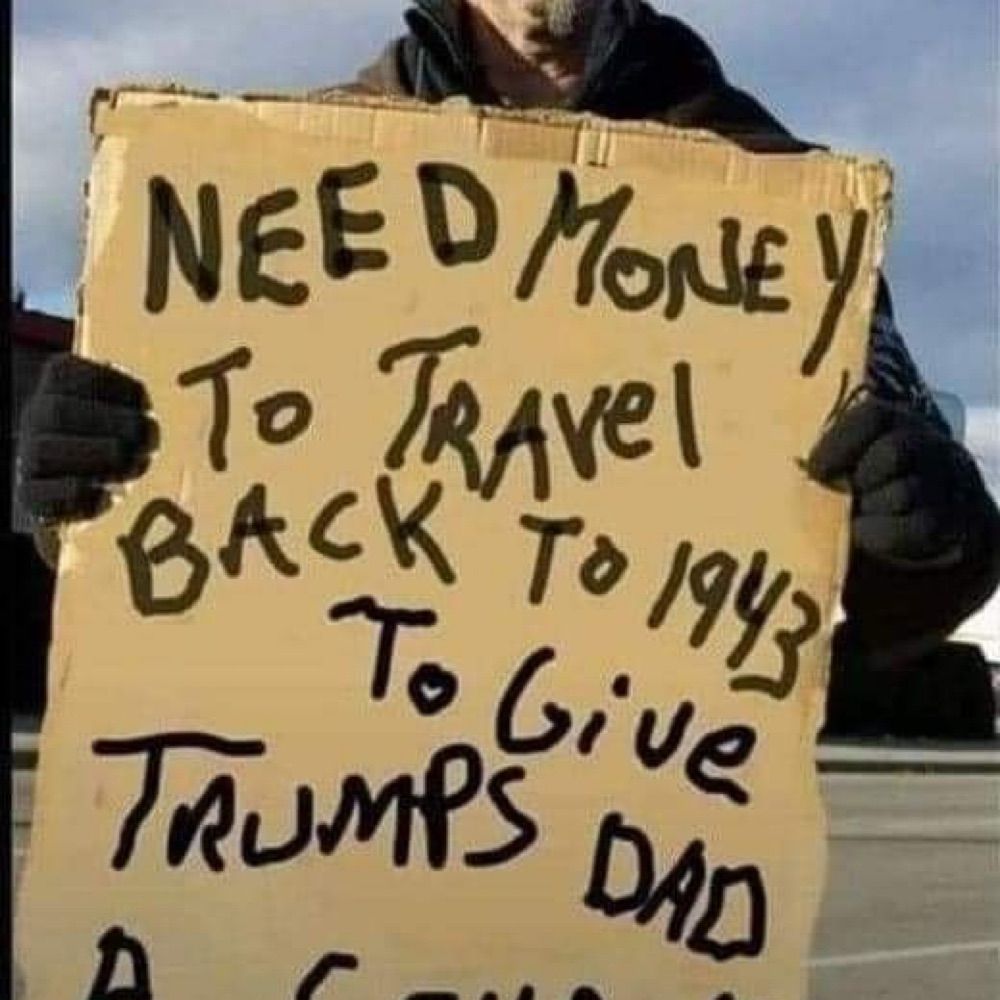 NEED MONEY
TO TRAVel
BACK TO 1943
To Give
TRUMPS DAD
A